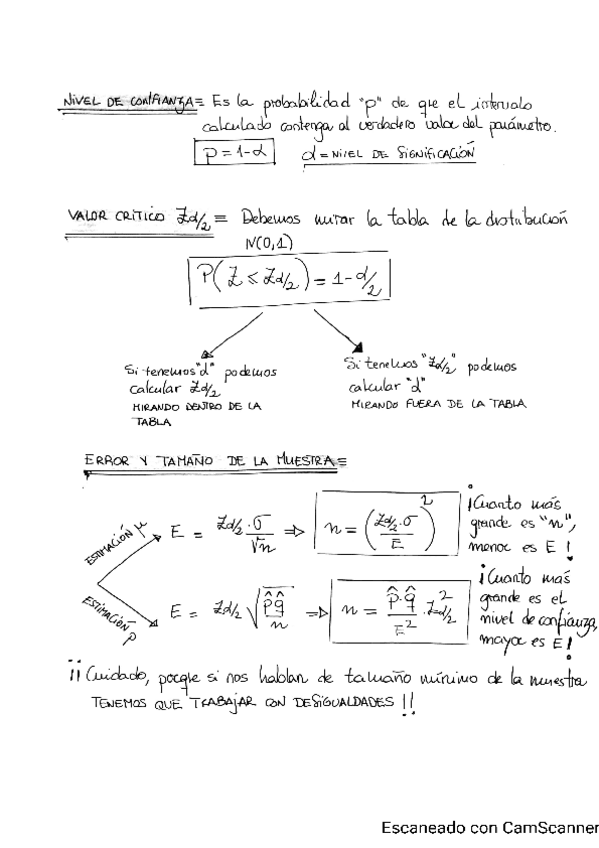 NIVEL DE CONFIANZA = Es la probabilidad "p" de que el intervalo
calculado contenga al verdadero valor del parámetro.
p = 1-α    α = NIVEL DE SIGNIFICACIÓN
VALOR CRÍTICO Zα/2 = Debemos mirar la tabla de la distribución
N(0,1)
P(Z ≤ Zα/2) = 1-α/2
Si tenemos "α" podemos
calcular Zα/2
MIRANDO DENTRO DE LA
TABLA
Si tenemos "Zα/2" podemos
calcular "α"
MIRANDO FUERA DE LA TABLA
ERROR Y TAMAÑO DE LA MUESTRA =
ESTIMACIÓN μ
E = Zα/2 · σ/√n ⇒ n = (Zα/2 · σ / E)²
¡Cuanto más
grande es "n",
menor es E!
ESTIMACIÓN p
E = Zα/2 √(p̂ q̂ / n) ⇒ n = p̂ · q̂ / E² · Z²α/2
¡Cuanto más
grande es el
nivel de confianza,
mayor es E!
¡¡Cuidado, porque si nos hablan de tamaño mínimo de la muestra
TENEMOS QUE TRABAJAR CON DESIGUALDADES!!
Escaneado con CamScanner